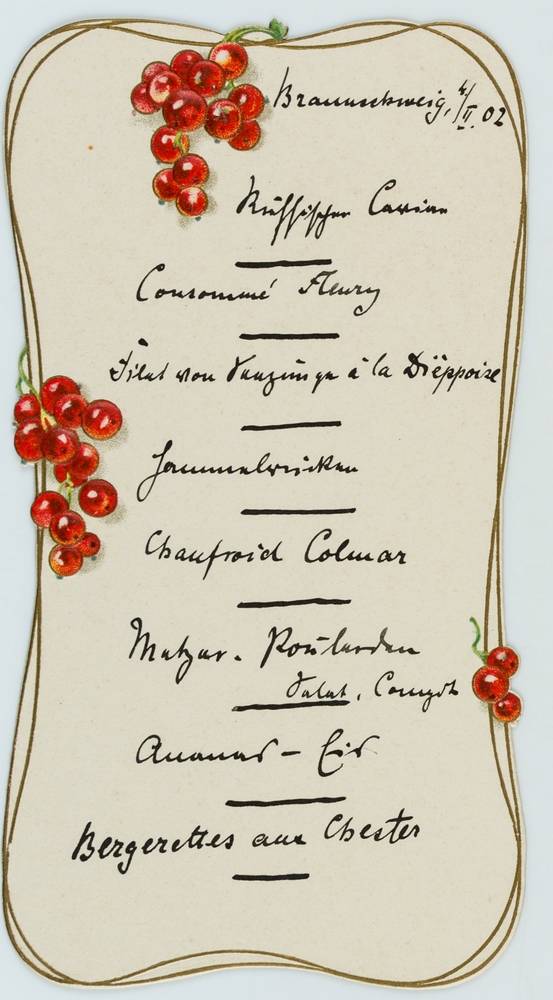 Braunschweig, 4/II. 02
Russischer Caviar
Consommé Fleury
Filet von Seezunge à la Diëppoise
Hammelrücken
Chaufroid Colmar
Metzer-Poularden
Salat, Compot
Ananas-Eis
Bergerettes aux Chester